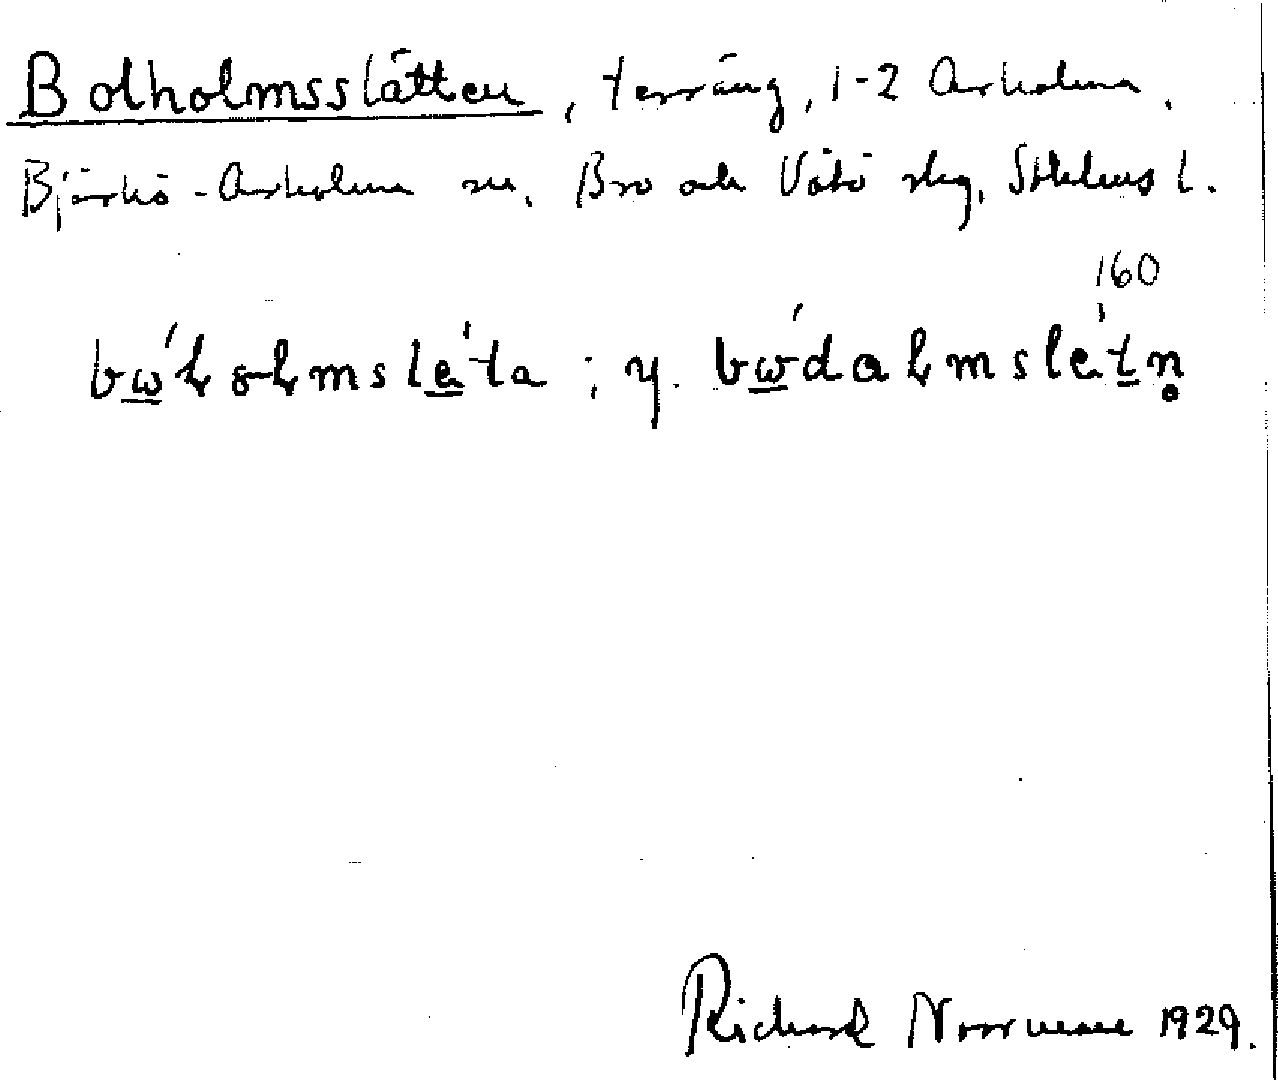 Botholmsslätten, terräng, 1-2 Arholma.
Björkö-Arholma sn. Bro och Vätö skg, Sthlms l.
160
bωⱡoⱡmsleta ; y. bωdaⱡmsletn̥
Richard Norrman 1929.